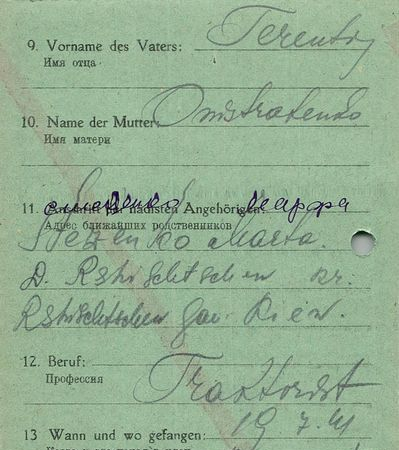 9. Vorname des Vaters: Terentij
Имя отца
10. Name der Mutter: Onistratenko
Имя матери
11. Anschrift der nächsten Angehörigen: Марфа
Адрес ближайших родственников
Marfa.
D. Rshischtschew kr.
Rshischtschew gou. Kiew.
12. Beruf: Traktorist
Профессия
19.7.41
13 Wann und wo gefangen: